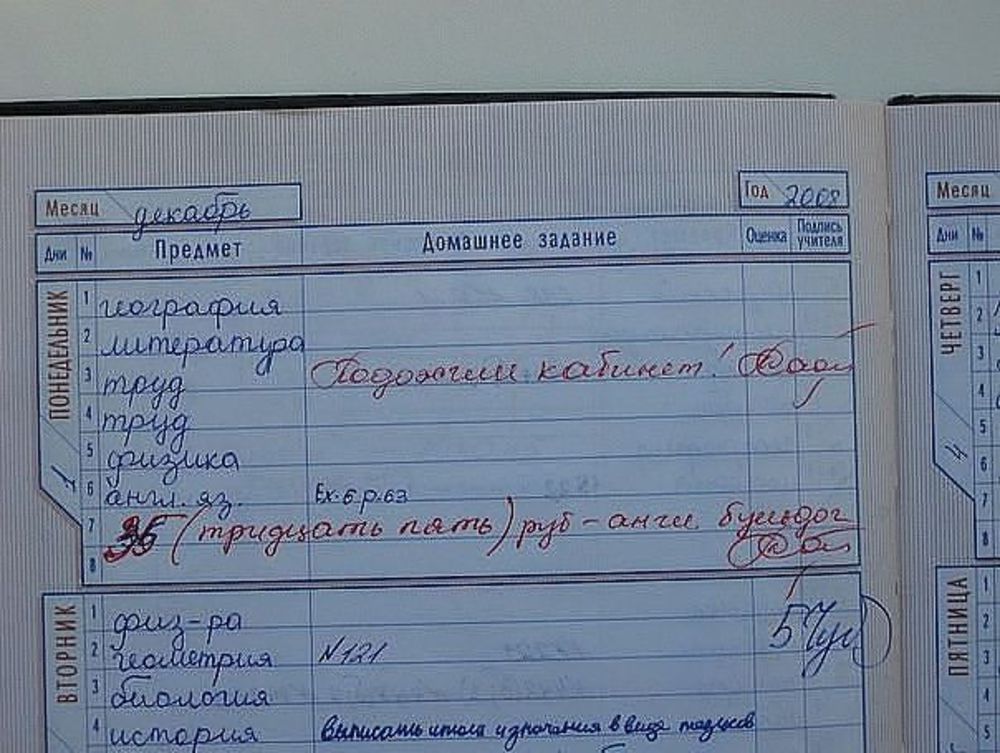 Месяц декабрь Год 2008
Дни № Предмет Домашнее задание Оценка Подпись учителя
ПОНЕДЕЛЬНИК 1
1 география
2 литература
3 труд Подожгли кабинет!
4 труд
5 физика
6 англ. яз. Ex. 6 p. 63
7 35 (тридцать пять) руб - англ бульдог
8
ВТОРНИК
1 физ-ра 5
2 геометрия №121
3 биология
4 история Выписать итоги и значения в виде тезисов
Месяц
Дни №
ЧЕТВЕРГ 4
1
2
3
4
5
6
7
8
ПЯТНИЦА
1
2
3
4
5